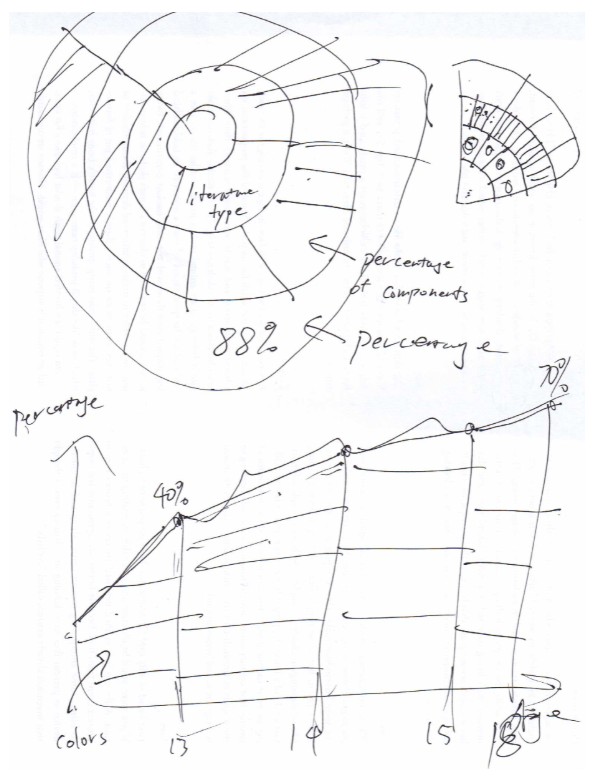 literature
type
percentage
of components
88%
percentage
percentage
70%
40%
colors
13
14
15
18
Age